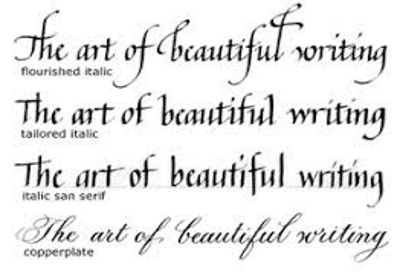 The art of beautiful writing
flourished italic
The art of beautiful writing
tailored italic
The art of beautiful writing
italic san serif
The art of beautiful writing
copperplate